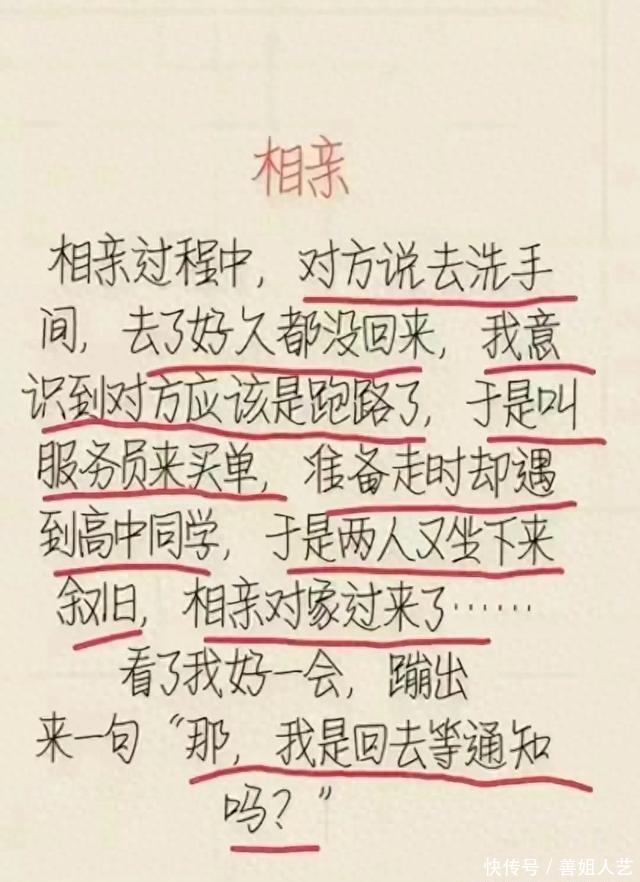 相亲
相亲过程中，对方说去洗手
间，去了好久都没回来，我意
识到对方应该是跑路了，于是叫
服务员来买单，准备走时却遇
到高中同学，于是两人又坐下来
叙旧，相亲对象过来了……
看了我好一会，蹦出
来一句“那，我是回去等通知
吗？”
快传号／善姐人艺